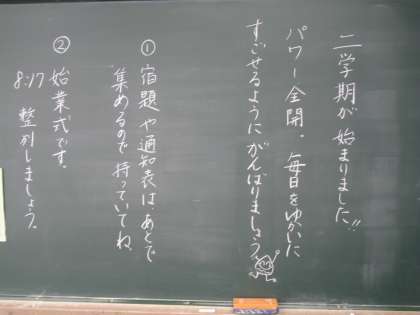 二学期が始まりました!!
パワー全開。毎日をゆかいに
すごせるようにがんばりましょう。
①宿題や通知表は、あとで
集めるので持っていてね。
②始業式です。
8:17 整列しましょう。